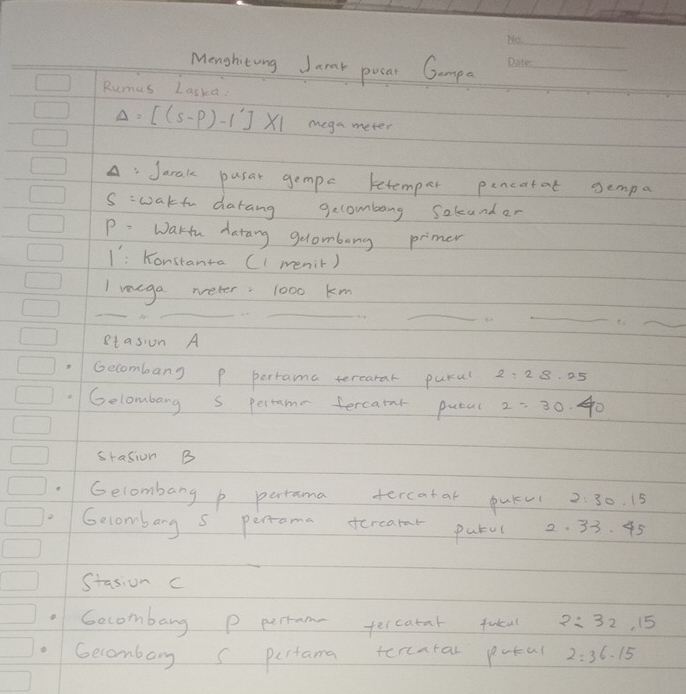 No.
Date
Menghitung Jarak pusat Gempa
Rumus Laska:
Δ = [(s-p)-1'] X1 mega meter
Δ : Jarak pusat gempa ketempat pencatat gempa
S = waktu datang gelombang Sekunder
P = Waktu datang gelombang primer
1' : Konstanta (1 menit)
1 mega meter = 1000 km
Stasiun A
• Gelombang p pertama tercatat pukul 2:28.25
• Gelombang S pertama tercatat pukul 2:30.40
Stasiun B
• Gelombang p pertama tercatat pukul 2:30.15
• Gelombang S pertama tercatat pukul 2.33.45
Stasiun C
• Gelombang p pertama tercatat pukul 2:32.15
• Gelombang S pertama tercatat pukul 2:36.15